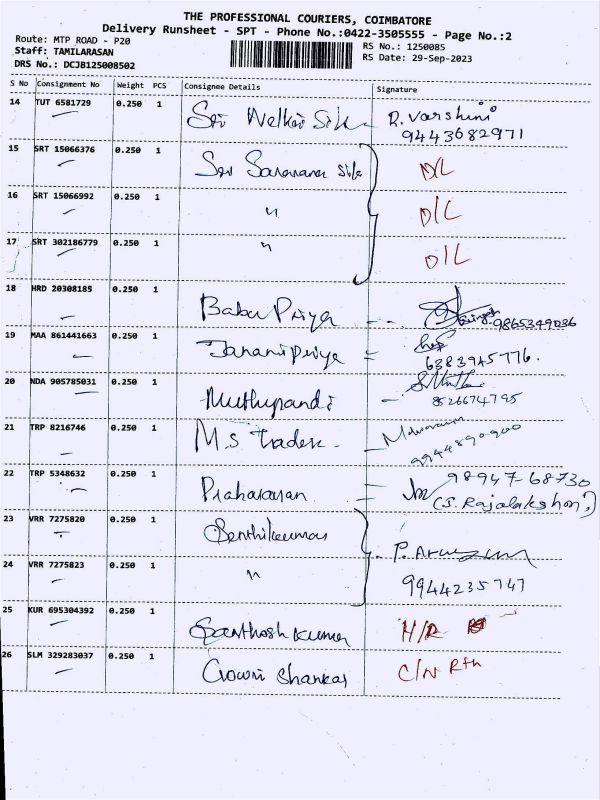 THE PROFESSIONAL COURIERS, COIMBATORE
Delivery Runsheet - SPT - Phone No.:0422-3505555 - Page No.:2
Route: MTP ROAD - P20
Staff: TAMILARASAN
DRS No.: DCJB125008502
RS No.: 1250085
RS Date: 29-Sep-2023
S No Consignment No Weight PCS Consignee Details Signature
14 TUT 6581729 0.250 1 Sri R. Varshini
9443682971
15 SRT 15066376 0.250 1 Sri Saravana Silk D/L
16 SRT 15066992 0.250 1 " D/L
17 SRT 302186779 0.250 1 " D/L
18 HRD 20308185 0.250 1 Babu Priya 9865349036
19 MAA 861441663 0.250 1 Janani Priya =
6383945776.
20 NDA 905785031 0.250 1 Muthupandi -
8526674795
21 TRP 8216746 0.250 1 M.S Traders -
9944890900
22 TRP 5348632 0.250 1 = 98947-68730
(S. Rajalakshmi)
23 VRR 7275820 0.250 1 Senthilkumar
24 VRR 7275823 0.250 1 " 9944235747
25 KUR 695304392 0.250 1 Santhosh Kumar H/R
26 SLM 329283037 0.250 1 Gowri Shankar C/N Rtn